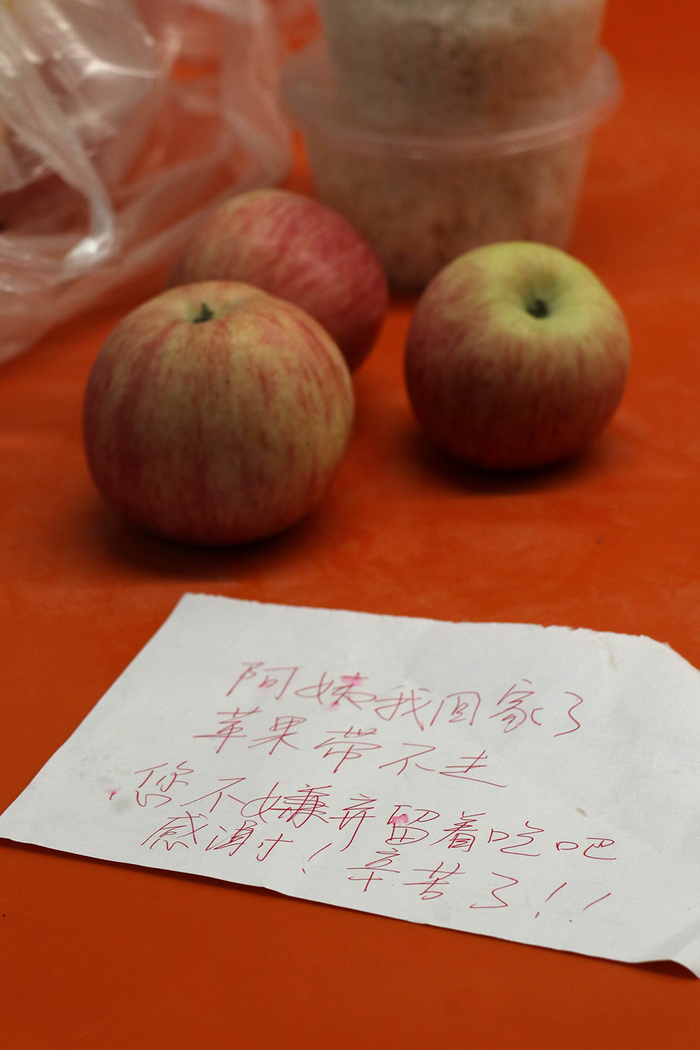 阿姨我回家了
苹果带不走
您不嫌弃留着吃吧
感谢！辛苦了！！